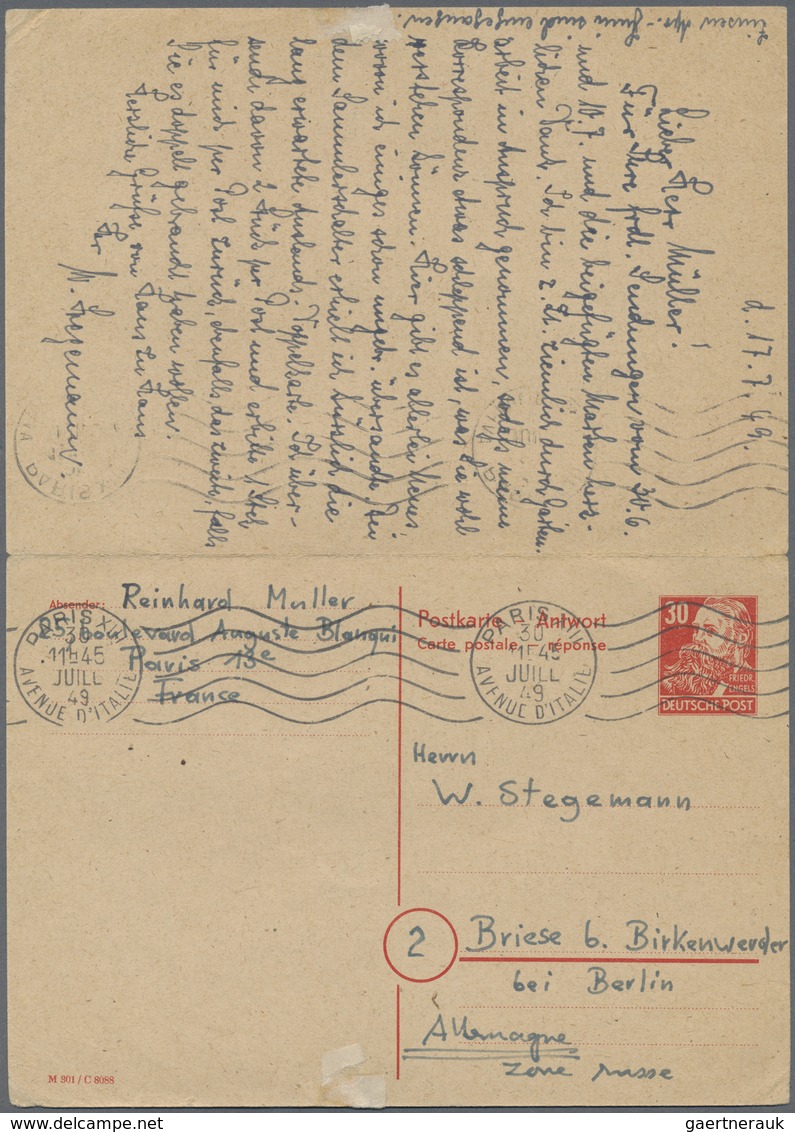 d. 17.7.49.
Lieber Herr Müller!
Für Ihre frdl. Sendungen vom 30.6.
und 10.7. und die beigefügten Marken herz-
lichen Dank. Ich bin z. Zt. ziemlich durch Garten-
arbeit in Anspruch genommen, sodaß meine
Korrespondenz etwas schleppend ist, was Sie wohl
verstehen können. Hier gibt es allerlei Neues,
wovon ich einiges schon übersande. An
dem Sammlerschalter erhielt ich kürzlich die
lang erwartete Auslands-Doppelkarte. Ich über-
sende davon 2 Stück per Post und erbitte 1 Stck
für mich per Post zurück, ebenfalls das zweite, falls
Sie es doppelt gebraucht haben wollen.
Herzliche Grüße von Haus zu Haus
Ihr
W. Stegemann.
sind eingegangen.
Absender: Reinhard Muller
Boulevard Auguste Blanqui
Paris 13e
France
PARIS XIII
30
11H45
JUILL
49
AVENUE D'ITALIE
Postkarte - Antwort
Carte postale réponse
PARIS XIII
30
11H45
JUILL
49
AVENUE D'ITALIE
30
FRIEDR.
ENGELS
DEUTSCHE POST
Herrn
W. Stegemann
2 Briese b. Birkenwerder
bei Berlin
Allemagne
zone russe
M 301 / C 8088
gaertnerauk